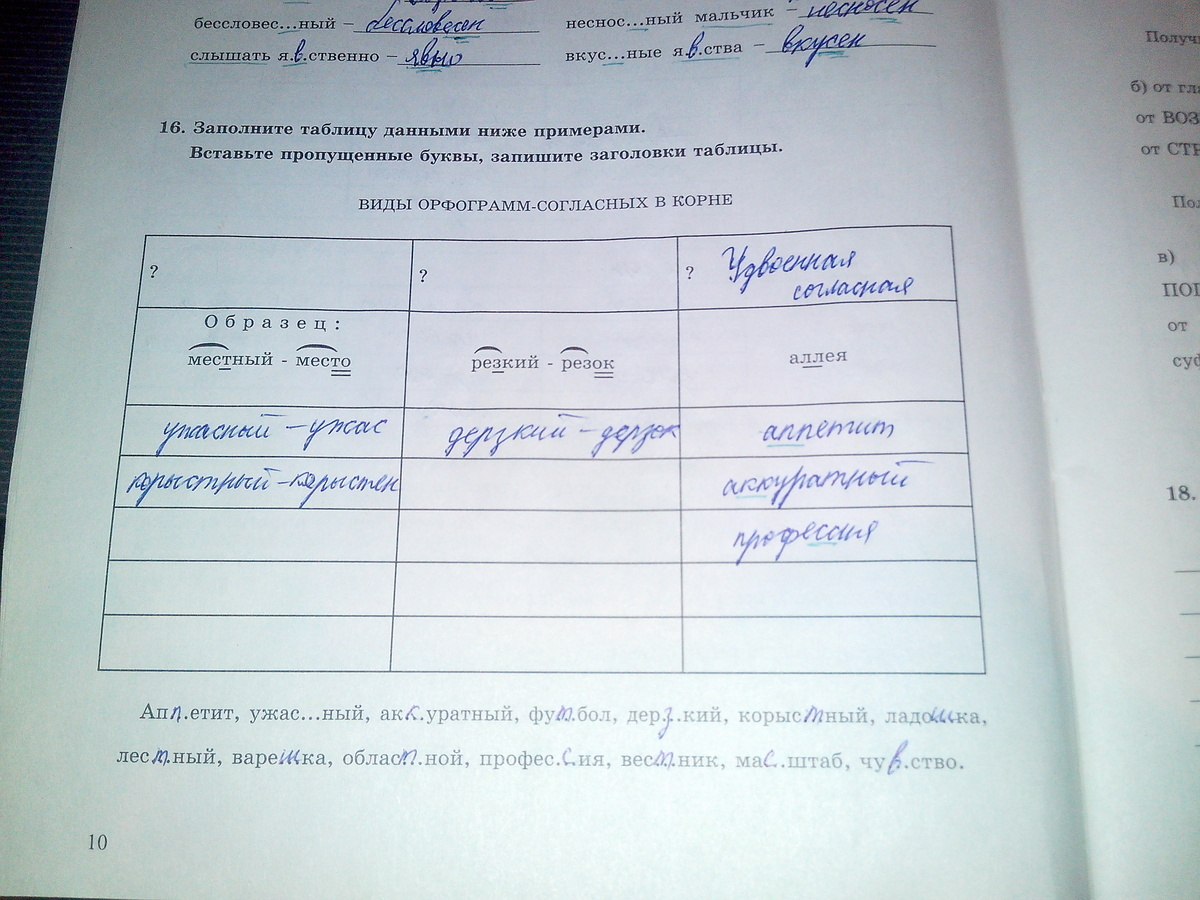 бессловес...ный – бессловесен
неснос...ный мальчик – несносен
слышать я.в.ственно – явно
вкус...ные я.в.ства – вкусен
16. Заполните таблицу данными ниже примерами.
Вставьте пропущенные буквы, запишите заголовки таблицы.
ВИДЫ ОРФОГРАММ-СОГЛАСНЫХ В КОРНЕ
? ? ? Удвоенная
согласная
Образец:
местный - место резкий - резок аллея
ужасный – ужас дерзкий – дерзок аппетит
корыстный – корыстен аккуратный
профессия
Апп.етит, ужас...ный, акк.уратный, фут.бол, дерз.кий, корыстный, ладошка,
лест.ный, варешка, област.ной, профес.с.ия, вест.ник, мас.штаб, чув.ство.
10
Получ
б) от гл
от ВОЗ
от СТР
Пол
в)
ПОГ
от
суф
18.